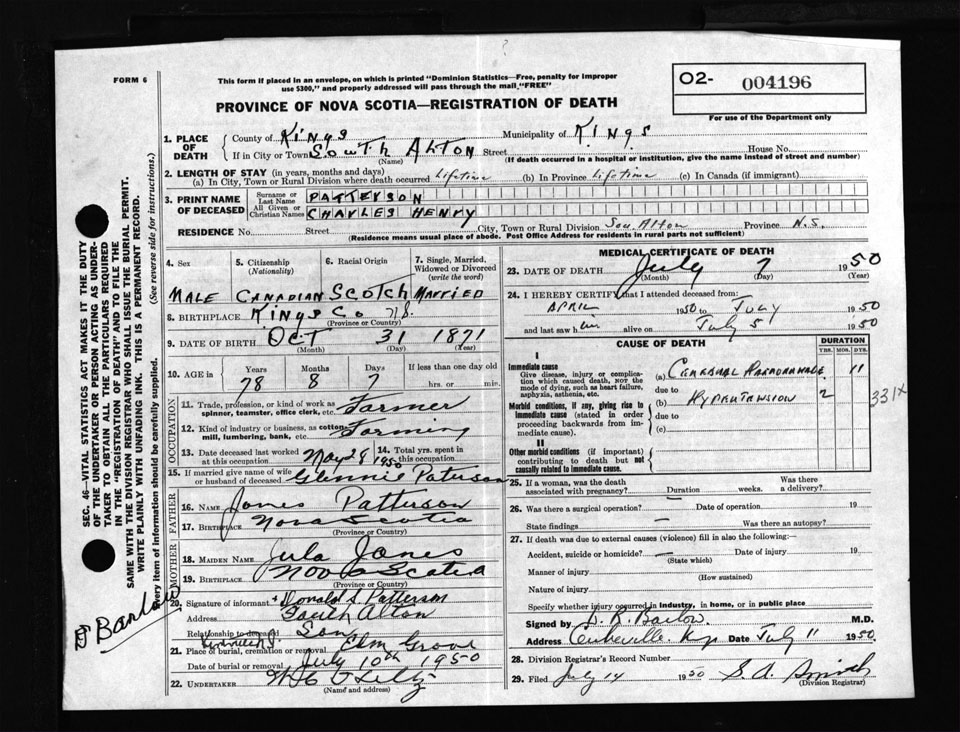 FORM 6
This form if placed in an envelope, on which is printed "Dominion Statistics—Free, penalty for improper
use $300," and properly addressed will pass through the mail "FREE"
O2- 004196
For use of the Department only
PROVINCE OF NOVA SCOTIA—REGISTRATION OF DEATH
1. PLACE OF DEATH
County of Kings Municipality of Kings
If in City or Town South Alton Street House No.
(Name) (If death occurred in a hospital or institution, give the name instead of street and number)
2. LENGTH OF STAY (in years, months and days)
(a) In City, Town or Rural Division where death occurred Lifetime (b) In Province Lifetime (c) In Canada (if immigrant)
3. PRINT NAME OF DECEASED
Surname or Last Name PATTERSON
All Given or Christian Names CHARLES HENRY
RESIDENCE No. Street City, Town or Rural Division Sou. Alton Province N.S.
(Residence means usual place of abode. Post Office Address for residents in rural parts not sufficient)
4. Sex 5. Citizenship (Nationality) 6. Racial Origin 7. Single, Married, Widowed or Divorced (write the word)
MALE CANADIAN SCOTCH MARRIED
8. BIRTHPLACE Kings Co N.S.
(Province or Country)
9. DATE OF BIRTH OCT 31 1871
(Month) (Day) (Year)
10. AGE in Years Months Days If less than one day old
78 8 7 hrs. or min.
OCCUPATION
11. Trade, profession, or kind of work as spinner, teamster, office clerk, etc. Farmer
12. Kind of industry or business, as cotton-mill, lumbering, bank, etc. Farming
13. Date deceased last worked at this occupation May 28 1950 14. Total yrs. spent in this occupation
15. If married give name of wife or husband of deceased Glennie Paterson
FATHER
16. NAME Jones Patterson
17. BIRTHPLACE Nova Scotia
(Province or Country)
MOTHER
18. MAIDEN NAME Jula Jones
19. BIRTHPLACE Nova Scotia
(Province or Country)
20. Signature of informant Donald S. Patterson
Address South Alton
Relationship to deceased Son
21. Place of burial, cremation or removal Elm Grove
Date of burial or removal July 10th 1950
22. UNDERTAKER
(Name and address)
MEDICAL CERTIFICATE OF DEATH
23. DATE OF DEATH July 7 1950
(Month) (Day) (Year)
24. I HEREBY CERTIFY that I attended deceased from:
APRIL 1950 to JULY 1950
and last saw him alive on July 5 1950
CAUSE OF DEATH DURATION
YRS. MOS. DYS.
I
Immediate cause
Give disease, injury or complication which caused death, NOT the mode of dying, such as heart failure, asphyxia, asthenia, etc.
(a) CEREBRAL HAEMORRHAGE 11
due to
Morbid conditions, if any, giving rise to immediate cause (stated in order proceeding backwards from immediate cause).
(b) HYPERTENSION 2
due to
(c)
331X
II
Other morbid conditions (if important) contributing to death but not causally related to immediate cause.
25. If a woman, was the death associated with pregnancy? Duration weeks. Was there a delivery?
26. Was there a surgical operation? — Date of operation 19
State findings — Was there an autopsy?
27. If death was due to external causes (violence) fill in also the following:—
Accident, suicide or homicide? — Date of injury 19
(State which)
Manner of injury
(How sustained)
Nature of injury
Specify whether injury occurred in industry, in home, or in public place
Signed by D. R. Barlow M.D.
Address Centreville Date July 11 1950.
28. Division Registrar's Record Number
29. Filed July 14 1950 S. A. Smith
(Division Registrar)
SEC. 46—VITAL STATISTICS ACT MAKES IT THE DUTY
OF THE UNDERTAKER OR PERSON ACTING AS UNDER-
TAKER TO OBTAIN ALL THE PARTICULARS REQUIRED
IN THE "REGISTRATION OF DEATH" AND TO FILE THE
SAME WITH THE DIVISION REGISTRAR WHO SHALL ISSUE THE BURIAL PERMIT.
WRITE PLAINLY WITH UNFADING INK. THIS IS A PERMANENT RECORD.
Every item of information should be carefully supplied. (See reverse side for instructions.)
Barlow